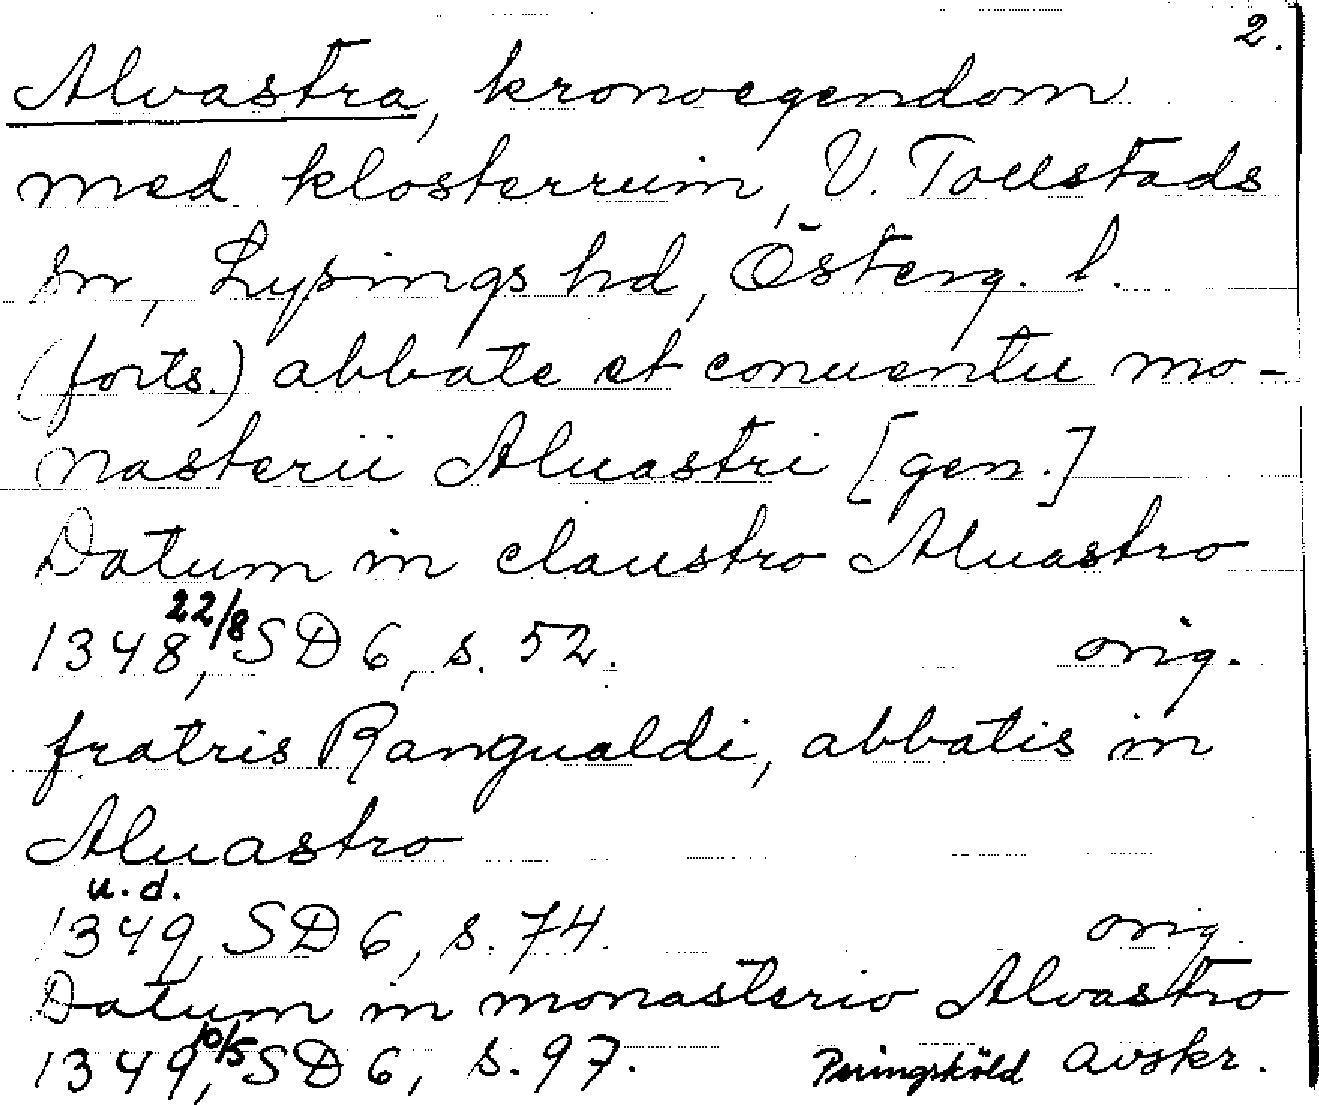 2.
Alvastra, kronoegendom
med klosterruin, V. Tollstads
sn, Lysings hd, Österg. l.
(forts.) abbate et conuentu mo-
nasterii Aluastri [gen.]
Datum in claustro Aluastro
1348 22/8, SD 6, s. 52. orig.
fratris Rangualdi, abbatis in
Aluastro
u.d.
1349, SD 6, s. 74. orig.
Datum in monasterio Alvastro
1349, 10/5 SD 6, s. 97. Peringsköld avskr.